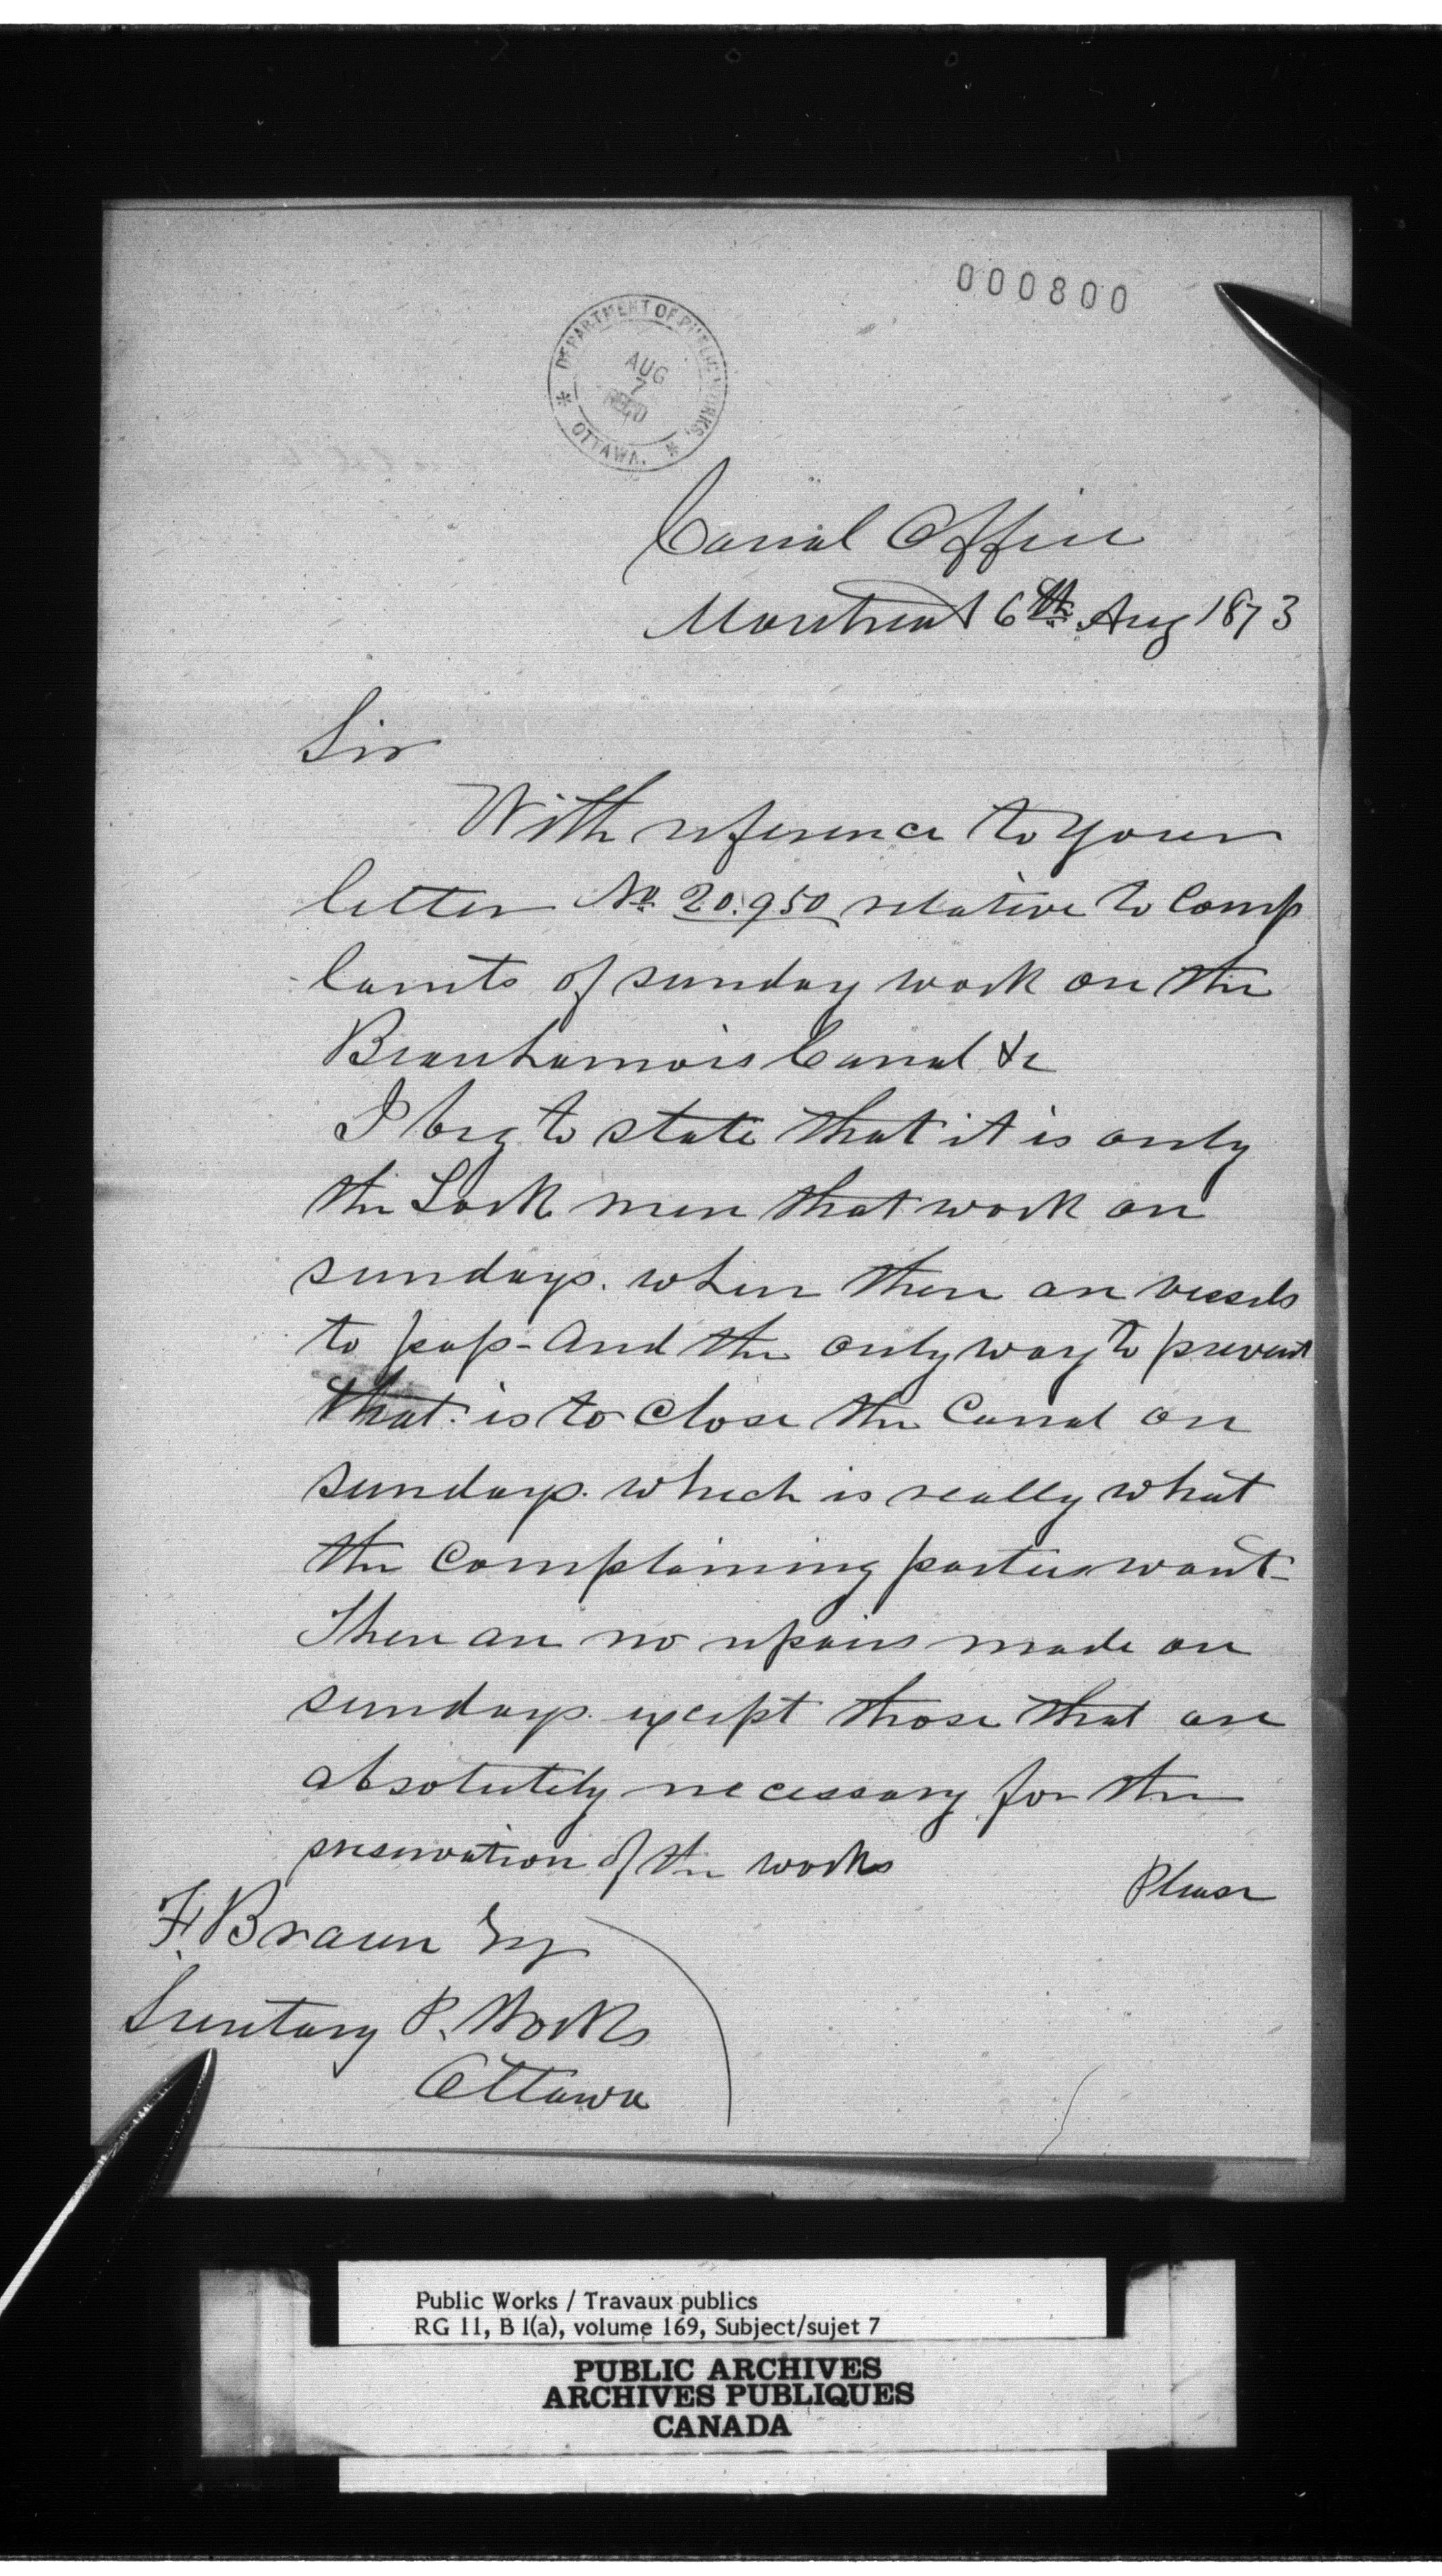 000800
* DEPARTMENT OF PUBLIC WORKS, * OTTAWA.
AUG
7
REC'D
Canal Office
Montreal 6th Aug 1873
Sir
With reference to your
letter No. 20.950 relative to Comp
laints of sunday work on the
Beauharnois Canal &c
I beg to state that it is only
the Lock men that work on
sundays. when there are vessels
to pass - And the only way to prevent
that is to Close the Canal on
sundays. which is really what
the Complaining parties want -
There are no repairs made on
sundays. except those that are
absolutely necessary for the
preservation of the works
Please
F. Braun Esq
Secretary P. Works
Ottawa
Public Works / Travaux publics
RG 11, B 1(a), volume 169, Subject/sujet 7
PUBLIC ARCHIVES
ARCHIVES PUBLIQUES
CANADA